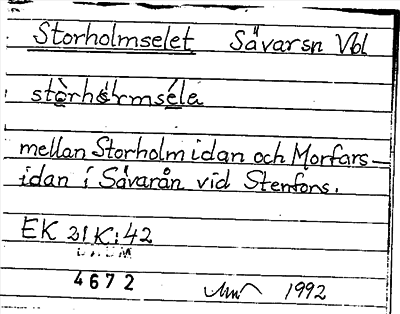 Storholmselet Sävarsn Vbl
stòrhólmséla
mellan Storholmidan och Morfars-
idan i Sävarån vid Stenfors.
EK 21K:42
DAUM
4672 1992